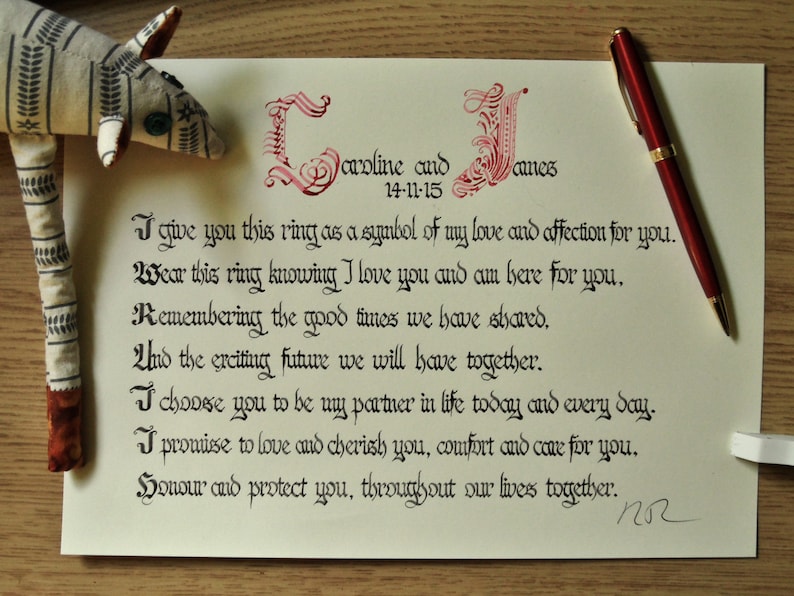 Caroline and James
14·11·15
I give you this ring as a symbol of my love and affection for you.
Wear this ring knowing I love you and am here for you,
Remembering the good times we have shared,
And the exciting future we will have together.
I choose you to be my partner in life today and every day.
I promise to love and cherish you, comfort and care for you,
Honour and protect you, throughout our lives together.